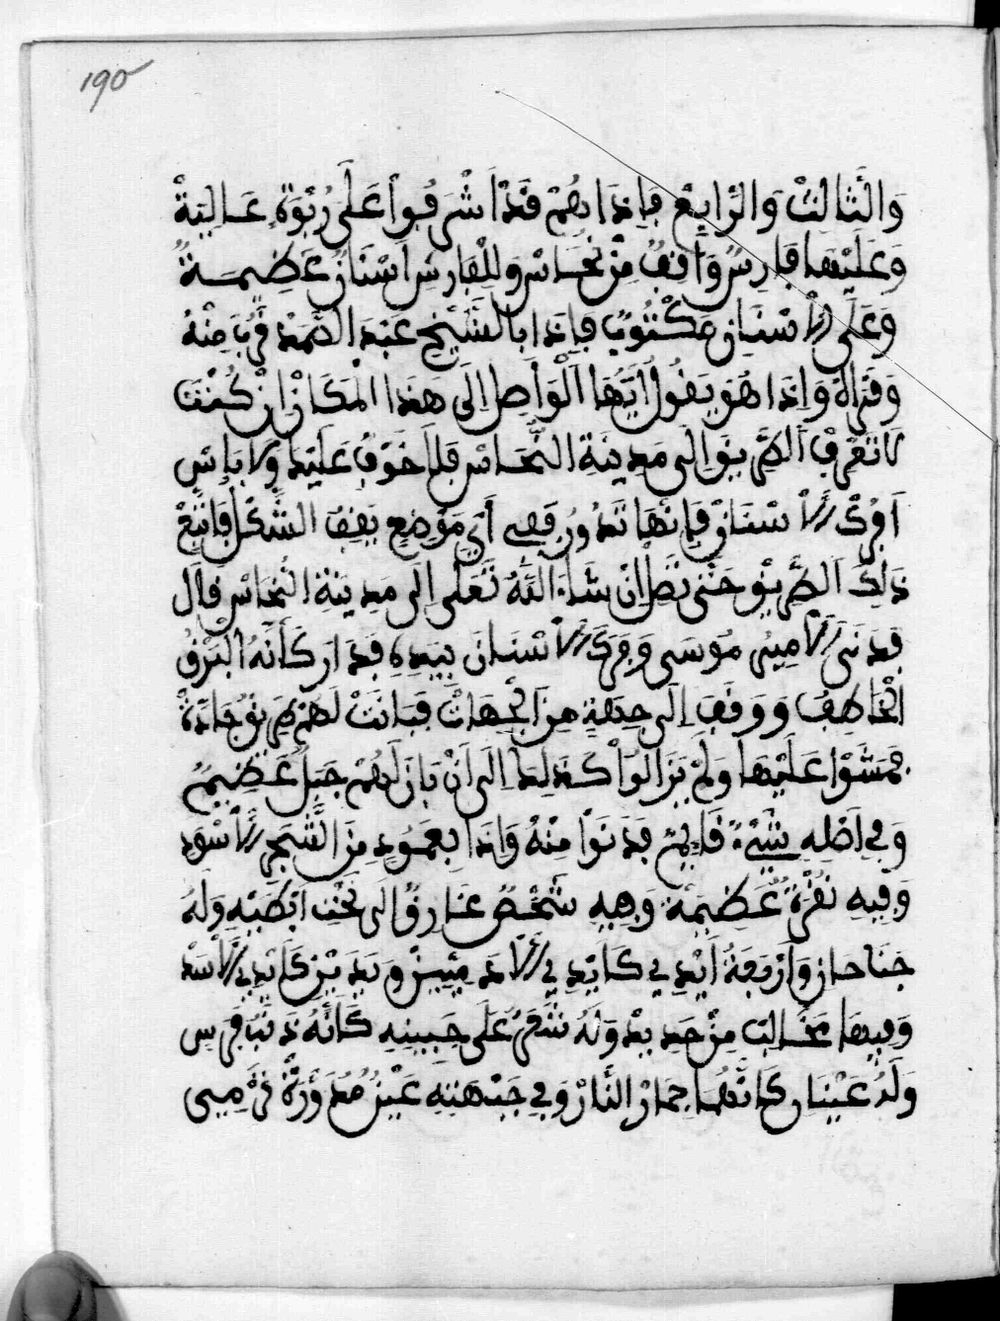 190
وَالثَّالِثْ وَالرَّابِعْ فَإِذَا بِهُمْ قَدْ اَشْرَفُوا عَلَى رُبْوَةٍ عَالِيَةْ
وَعَلَيْهَا فَارِسٌ وَاقِفٌ مِنْ نُحَاسْ وَلِلْفَارِسِ اَسْنَانٌ عَضِيمَةٌ
وَعَلَى الْأَسْنَانِ مَكْتُوبٌ فَإِذَا بِالشَّيْخِ عَبْدِ الصَّمَدْ قَرُبَ مِنْهُ
وَقَرَاهُ وَإِذَا هُوَ يَقُولُ اَيُّهَا الْوَاصِلِ إِلَى هَذَا الْمَكَانْ اِنْ كُنْتَ
لَا تَعْرِفُ الطَّرِيقَ إِلَى مَدِينَةِ النُّحَاسْ فَلَا خَوْفٌ عَلَيْكَ وَلَا بَاسْ
اَفْرُكْ الْأَسْنَانْ فَإِنَّهَا تَدُورُ فَفِي أَيِّ مَوْضِعٍ يَقِفُ الشَّكْلْ فَاتَّبِعْ
ذَلِكَ الطَّرِيقْ حَتَّى تَصِلْ اِنْ شَاءَ اللَّهُ تَعَلَى إِلَى مَدِينَةِ النُّحَاسْ قَالَ
فَدَنَى الْأَمِيرُ مُوسَى وَفَرَكَ الْأَسْنَانَ بِيَدِهِ فَدَارَ كَأَنَّهُ الْبَرْقُ
الْخَاطِفُ وَوَقَفَ إِلَى جِهَةٍ مِنَ الْجِهَاتْ فَبَانَتْ لَهُمْ طَرِيقُ جَادَةْ
فَمَشَوْا عَلَيْهَا وَلَمْ يَزَالُوا كَذَلِكَ إِلَى اَنْ بَانَ لَهُمْ جَبَلٌ عَضِيمٌ
وَفِي اَصْلِهِ شَيْءٌ قَايِمْ فَدَنَوْا مِنْهُ وَإِذَا بِعَمُودٍ مِنَ الشَّجَرِ الْأَسْوَدِ
وَفِيهِ نُقْرَةٌ عَضِيمَةْ وَفِيهِ شَخْصٌ غَارِقٌ إِلَى تَحْتِ اِبْطَيْهِ وَلَهُ
جَنَاحَانْ وَأَرْبَعَةُ أَيْدِي كَايْدِي الْأَدَمِيِّينْ وَيَدَيْنِ كَايْدِي الْأَسَدْ
وَفِيهَا مَخَالِبْ مِنْ حَدِيدْ وَلَهُ شَعَرٌ عَلَى جَبِينِهِ كَأَنَّهُ ذَنَبُ فَرَسٍ
وَلَهُ عَيْنَانِ كَأَنَّهُمَا جِمَارُ النَّارْ وَفِي جَبْهَتِهِ عَيْنٌ مُدَوَّرَةْ تَرْمِي